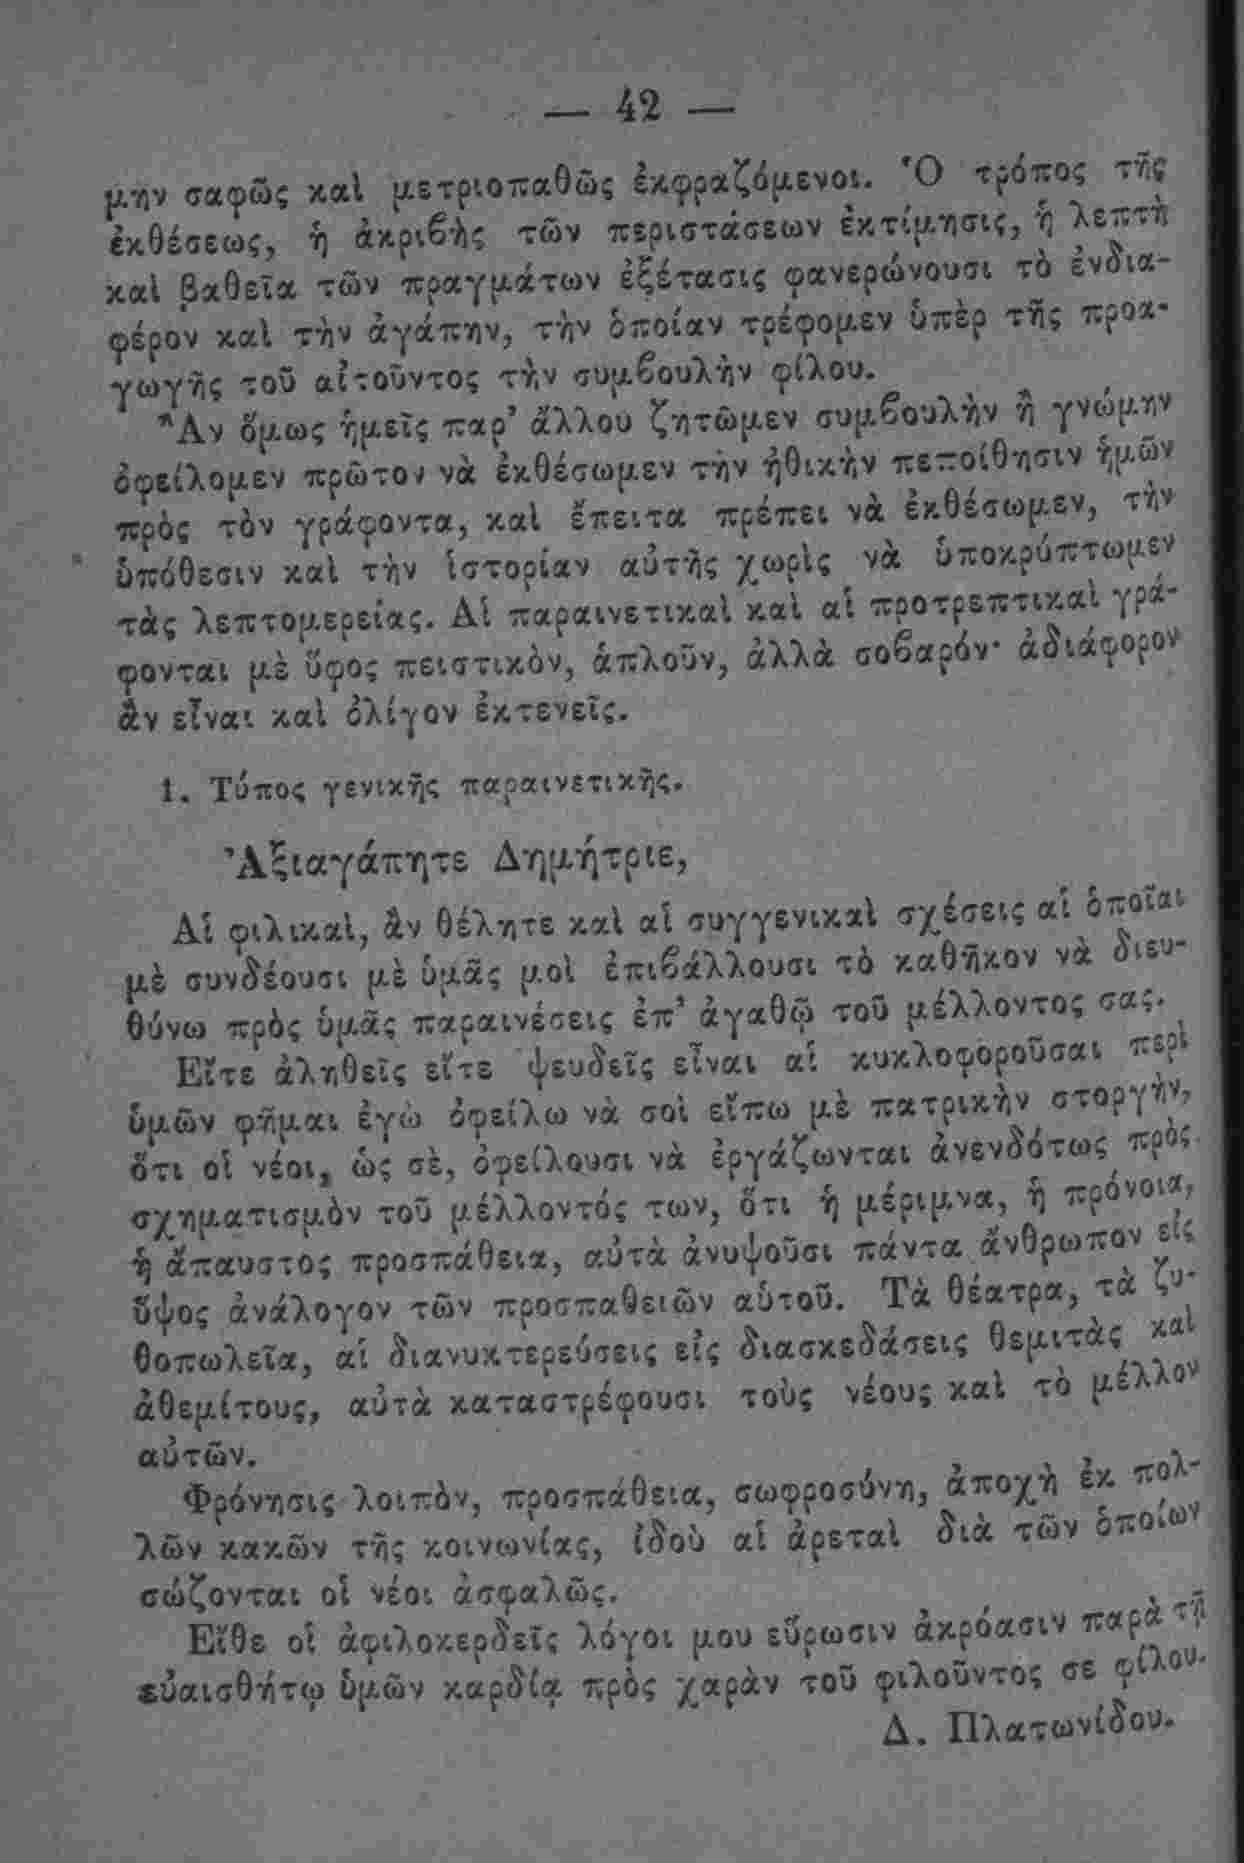 — 42 —
μην σαφῶς καὶ μετριοπαθῶς ἐκφραζόμενοι. Ὁ τρόπος τῆς
ἐκθέσεως, ἡ ἀκριβὴς τῶν περιστάσεων ἐκτίμησις, ἡ λεπτὴ
καὶ βαθεῖα τῶν πραγμάτων ἐξέτασις φανερώνουσι τὸ ἐνδια-
φέρον καὶ τὴν ἀγάπην, τὴν ὁποίαν τρέφομεν ὑπὲρ τῆς προα-
γωγῆς τοῦ αἰτοῦντος τὴν συμβουλὴν φίλου.
Ἂν ὅμως ἡμεῖς παρ’ ἄλλου ζητῶμεν συμβουλὴν ἢ γνώμην
ὀφείλομεν πρῶτον νὰ ἐκθέσωμεν τὴν ἠθικὴν πεποίθησιν ἡμῶν
πρὸς τὸν γράφοντα, καὶ ἔπειτα πρέπει νὰ ἐκθέσωμεν, τὴν
ὑπόθεσιν καὶ τὴν ἱστορίαν αὐτῆς χωρὶς νὰ ὑποκρύπτωμεν
τὰς λεπτομερείας. Αἱ παραινετικαὶ καὶ αἱ προτρεπτικαὶ γρά-
φονται μὲ ὕφος πειστικὸν, ἁπλοῦν, ἀλλὰ σοβαρόν· ἀδιάφορον
ἂν εἶναι καὶ ὀλίγον ἐκτενεῖς.
1. Τύπος γενικῆς παραινετικῆς.
Ἀξιαγάπητε Δημήτριε,
Αἱ φιλικαὶ, ἂν θέλητε καὶ αἱ συγγενικαὶ σχέσεις αἱ ὁποῖαι
μὲ συνδέουσι μὲ ὑμᾶς μοὶ ἐπιβάλλουσι τὸ καθῆκον νὰ διευ-
θύνω πρὸς ὑμᾶς παραινέσεις ἐπ’ ἀγαθῷ τοῦ μέλλοντος σας.
Εἴτε ἀληθεῖς εἴτε ψευδεῖς εἶναι αἱ κυκλοφοροῦσαι περὶ
ὑμῶν φῆμαι ἐγὼ ὀφείλω νὰ σοὶ εἴπω μὲ πατρικὴν στοργὴν,
ὅτι οἱ νέοι, ὡς σὲ, ὀφείλουσι νὰ ἐργάζωνται ἀνενδότως πρὸς
σχηματισμὸν τοῦ μέλλοντός των, ὅτι ἡ μέριμνα, ἡ πρόνοια,
ἡ ἄπαυστος προσπάθεια, αὐτὰ ἀνυψοῦσι πάντα ἄνθρωπον εἰς
ὕψος ἀνάλογον τῶν προσπαθειῶν αὑτοῦ. Τὰ θέατρα, τὰ ζυ-
θοπωλεῖα, αἱ διανυκτερεύσεις εἰς διασκεδάσεις θεμιτὰς καὶ
ἀθεμίτους, αὐτὰ καταστρέφουσι τοὺς νέους καὶ τὸ μέλλον
αὐτῶν.
Φρόνησις λοιπὸν, προσπάθεια, σωφροσύνη, ἀποχὴ ἐκ πολ-
λῶν κακῶν τῆς κοινωνίας, ἰδοὺ αἱ ἀρεταὶ διὰ τῶν ὁποίων
σώζονται οἱ νέοι ἀσφαλῶς.
Εἴθε οἱ ἀφιλοκερδεῖς λόγοι μου εὕρωσιν ἀκρόασιν παρὰ τῇ
εὐαισθήτῳ ὑμῶν καρδίᾳ πρὸς χαρὰν τοῦ φιλοῦντος σε φίλου.
Δ. Πλατωνίδου.